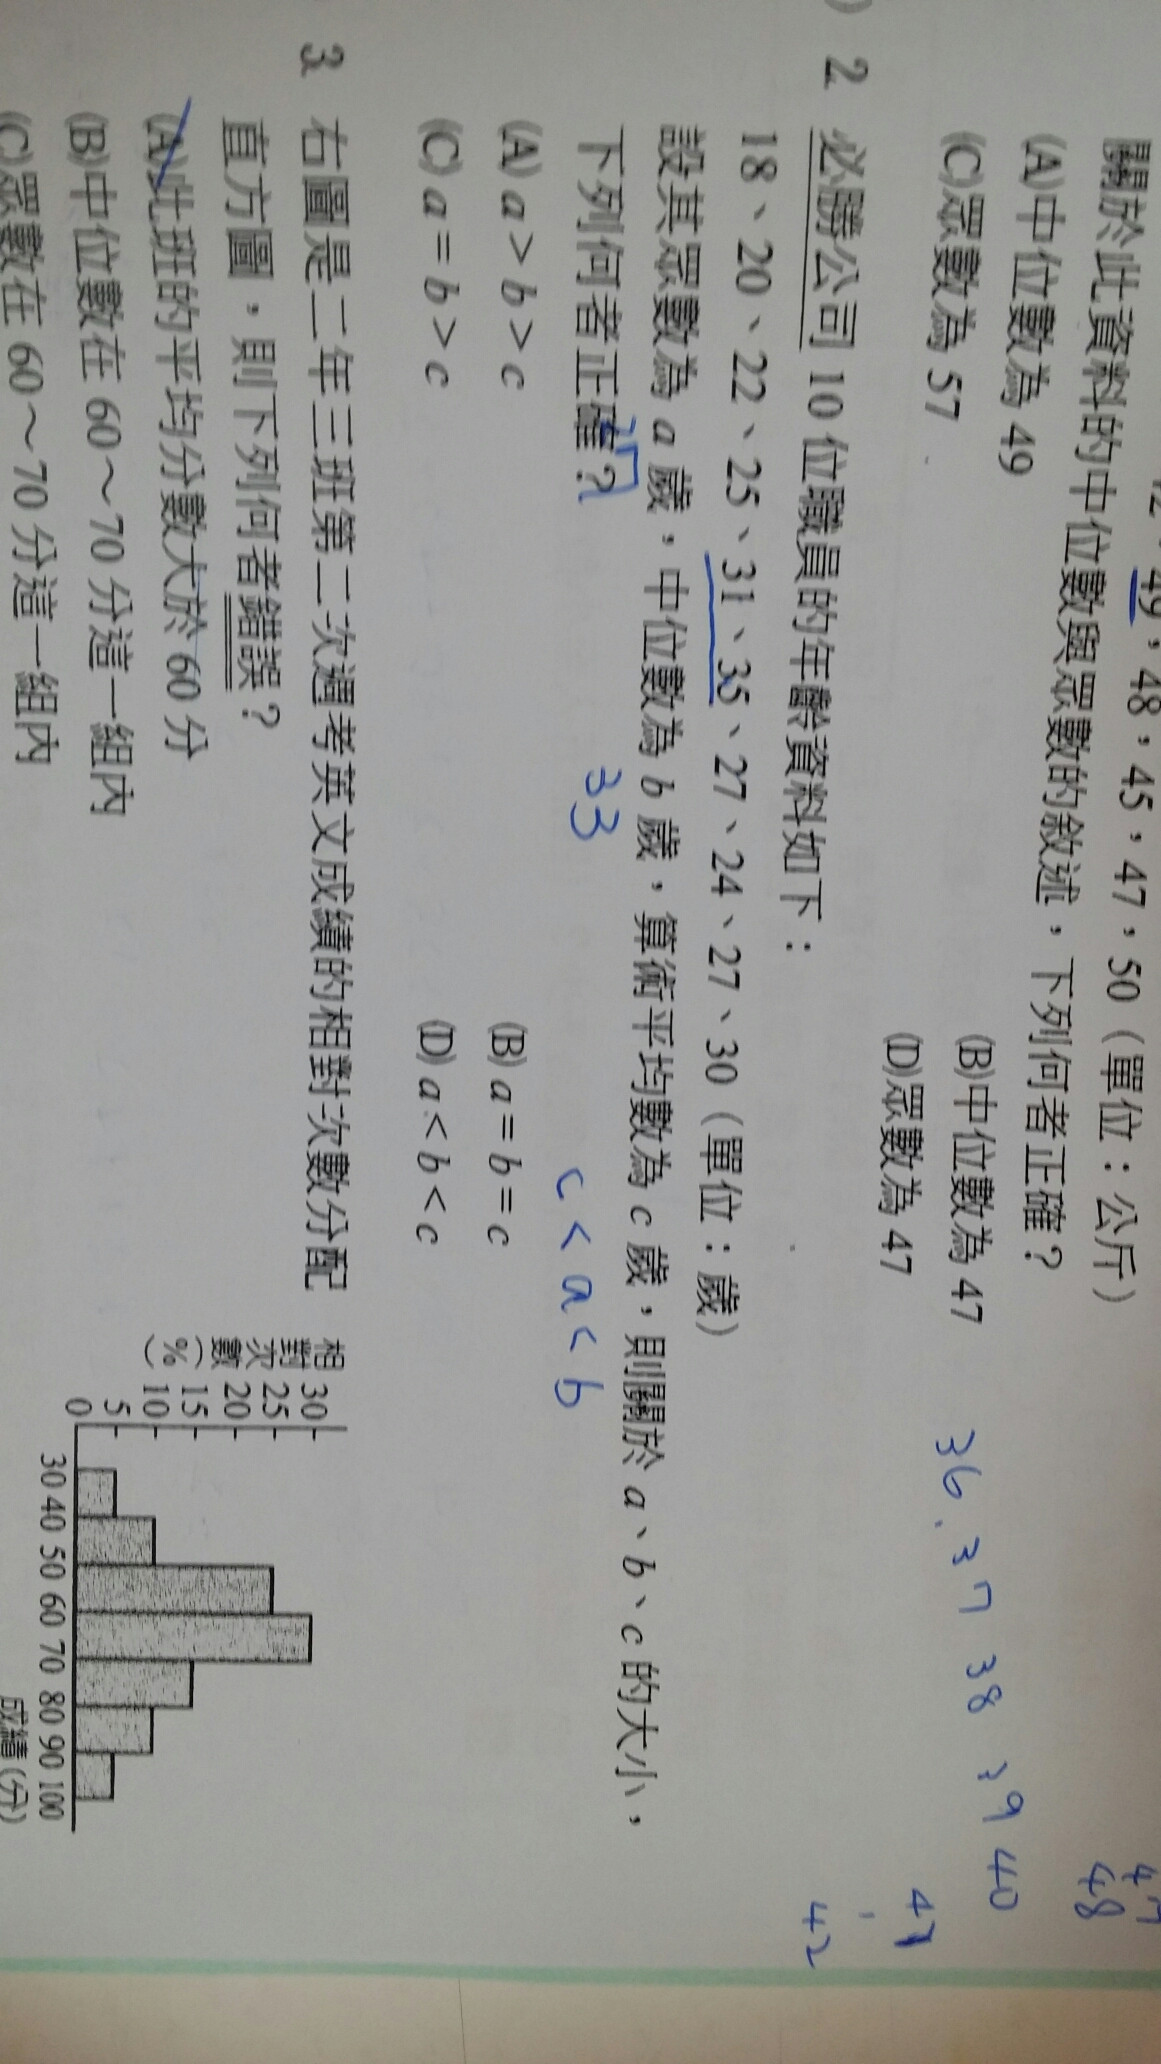 12，49，48，45，47，50（單位：公斤）
關於此資料的中位數與眾數的敘述，下列何者正確？
(A)中位數為 49
(B)中位數為 47
(C)眾數為 57
(D)眾數為 47
36. 37 38 39 40
47
48
41
42
2 必勝公司 10 位職員的年齡資料如下：
18、20、22、25、31、35、27、24、27、30（單位：歲）
設其眾數為 a 歲，中位數為 b 歲，算術平均數為 c 歲，則關於 a、b、c 的大小，
下列何者正確？
33
c < a < b
(A) a > b > c
(B) a = b = c
(C) a = b > c
(D) a < b < c
3. 右圖是二年三班第二次週考英文成績的相對次數分配
直方圖，則下列何者錯誤？
(A)此班的平均分數大於 60 分
(B)中位數在 60～70 分這一組內
(C)眾數在 60～70 分這一組內
相對次數(%)
30
25
20
15
10
5
0
30 40 50 60 70 80 90 100
成績(分)